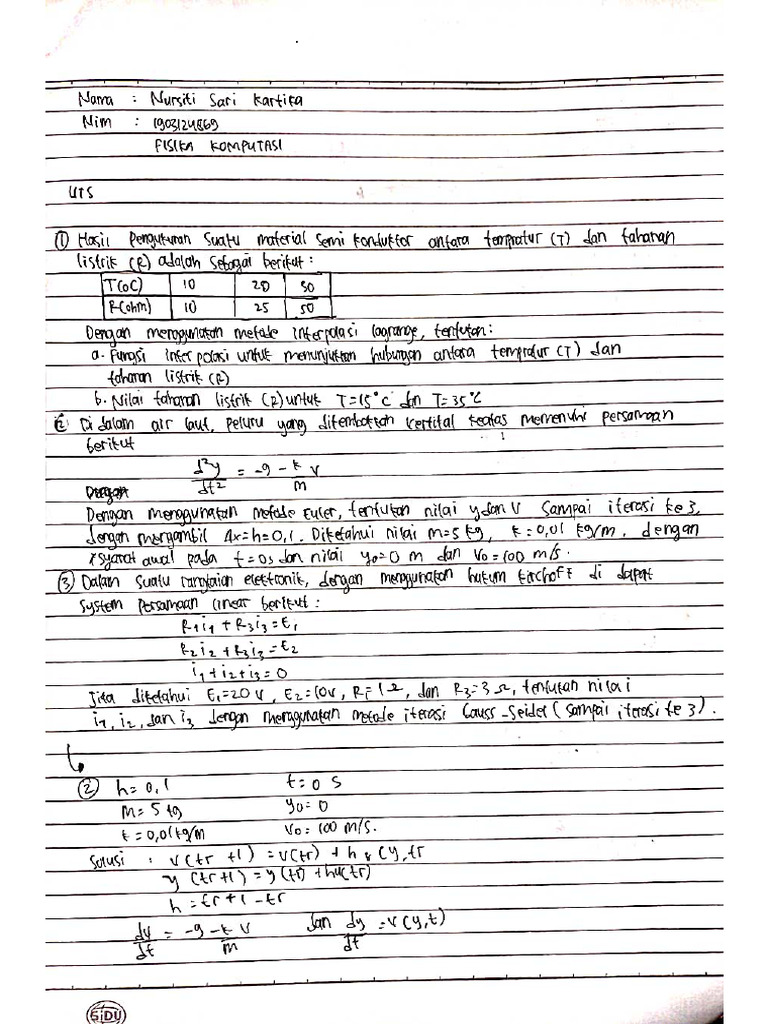 Nama : Nursiti Sari Kartika
Nim : 1903124869
FISIKA KOMPUTASI
UTS
① Hasil Pengukuran Suatu material Semi Konduktor antara tempratur (T) dan tahanan
listrik (R) adalah sebagai berikut :
T(oC) 10 20 30
R(ohm) 10 25 50
Dengan menggunakan metode interpolasi lagrange, tentukan:
a. Fungsi interpolasi untuk menunjukkan hubungan antara tempratur (T) dan
tahanan listrik (R)
b. Nilai tahanan listrik (R) untuk T=15°C dan T=35°C
② Di dalam air laut, peluru yang ditembakkan vertikal keatas memenuhi persamaan
berikut
d²y/dt² = -g - k/m v
Dengan menggunakan metode Euler, tentukan nilai y dan v sampai iterasi ke 3,
dengan mengambil Δx=h=0,1. Diketahui nilai m=5 kg, k=0,01 kg/m. dengan
syarat awal pada t=0s dan nilai y₀=0 m dan V₀=100 m/s.
③ Dalam Suatu rangkaian elektronik, dengan menggunakan hukum kirchoff di dapat
System Persamaan linear berikut :
R₁i₁ + R₃i₃=E₁
R₂i₂ + R₃i₃=E₂
i₁+i₂+i₃=0
Jika diketahui E₁=20 V, E₂=10V, R=1Ω, dan R₃=3Ω, tentukan nilai
i₁, i₂, dan i₃ dengan menggunakan metode iterasi Gauss-Seidel (sampai iterasi ke 3).
② h=0,1 t=0 S
M=5 kg y₀=0
k=0,01kg/m V₀=100 m/s.
Solusi : v(tr +1)=v(tr) + h (y,tr
y (tr+1)=y(tr)+hv(tr)
h=tr+1-tr
dv/dt = -g-k/m v dan dy/dt =v(y,t)
SiDU